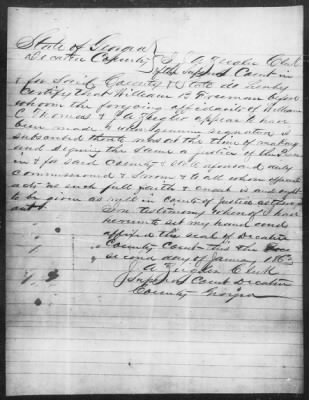 State of Georgia
Decatur County } I J A Zeigler Clerk
of the Superior Court in
& for Said County & State do hereby
Certify that William B Freeman before
whom the forgoing affidavits of William
C Thomas & J A Zeigler appear to have
been made & whose genuine signature is
subscribed thereto was at the time of making
and signing the same a Justice of the Peace
in & for said County & State aforesaid duly
commissioned & Sworn & to all whose official
acts as such full faith & credit is and ought
to be given as well in courts of justice as thereof
out
In testimony whereof I have
hereunto set my hand and
affixed the seal of Decatur
County Court this the
second day of January 186
J A Zeigler Clerk
Supr Court Decatur
County Georgia